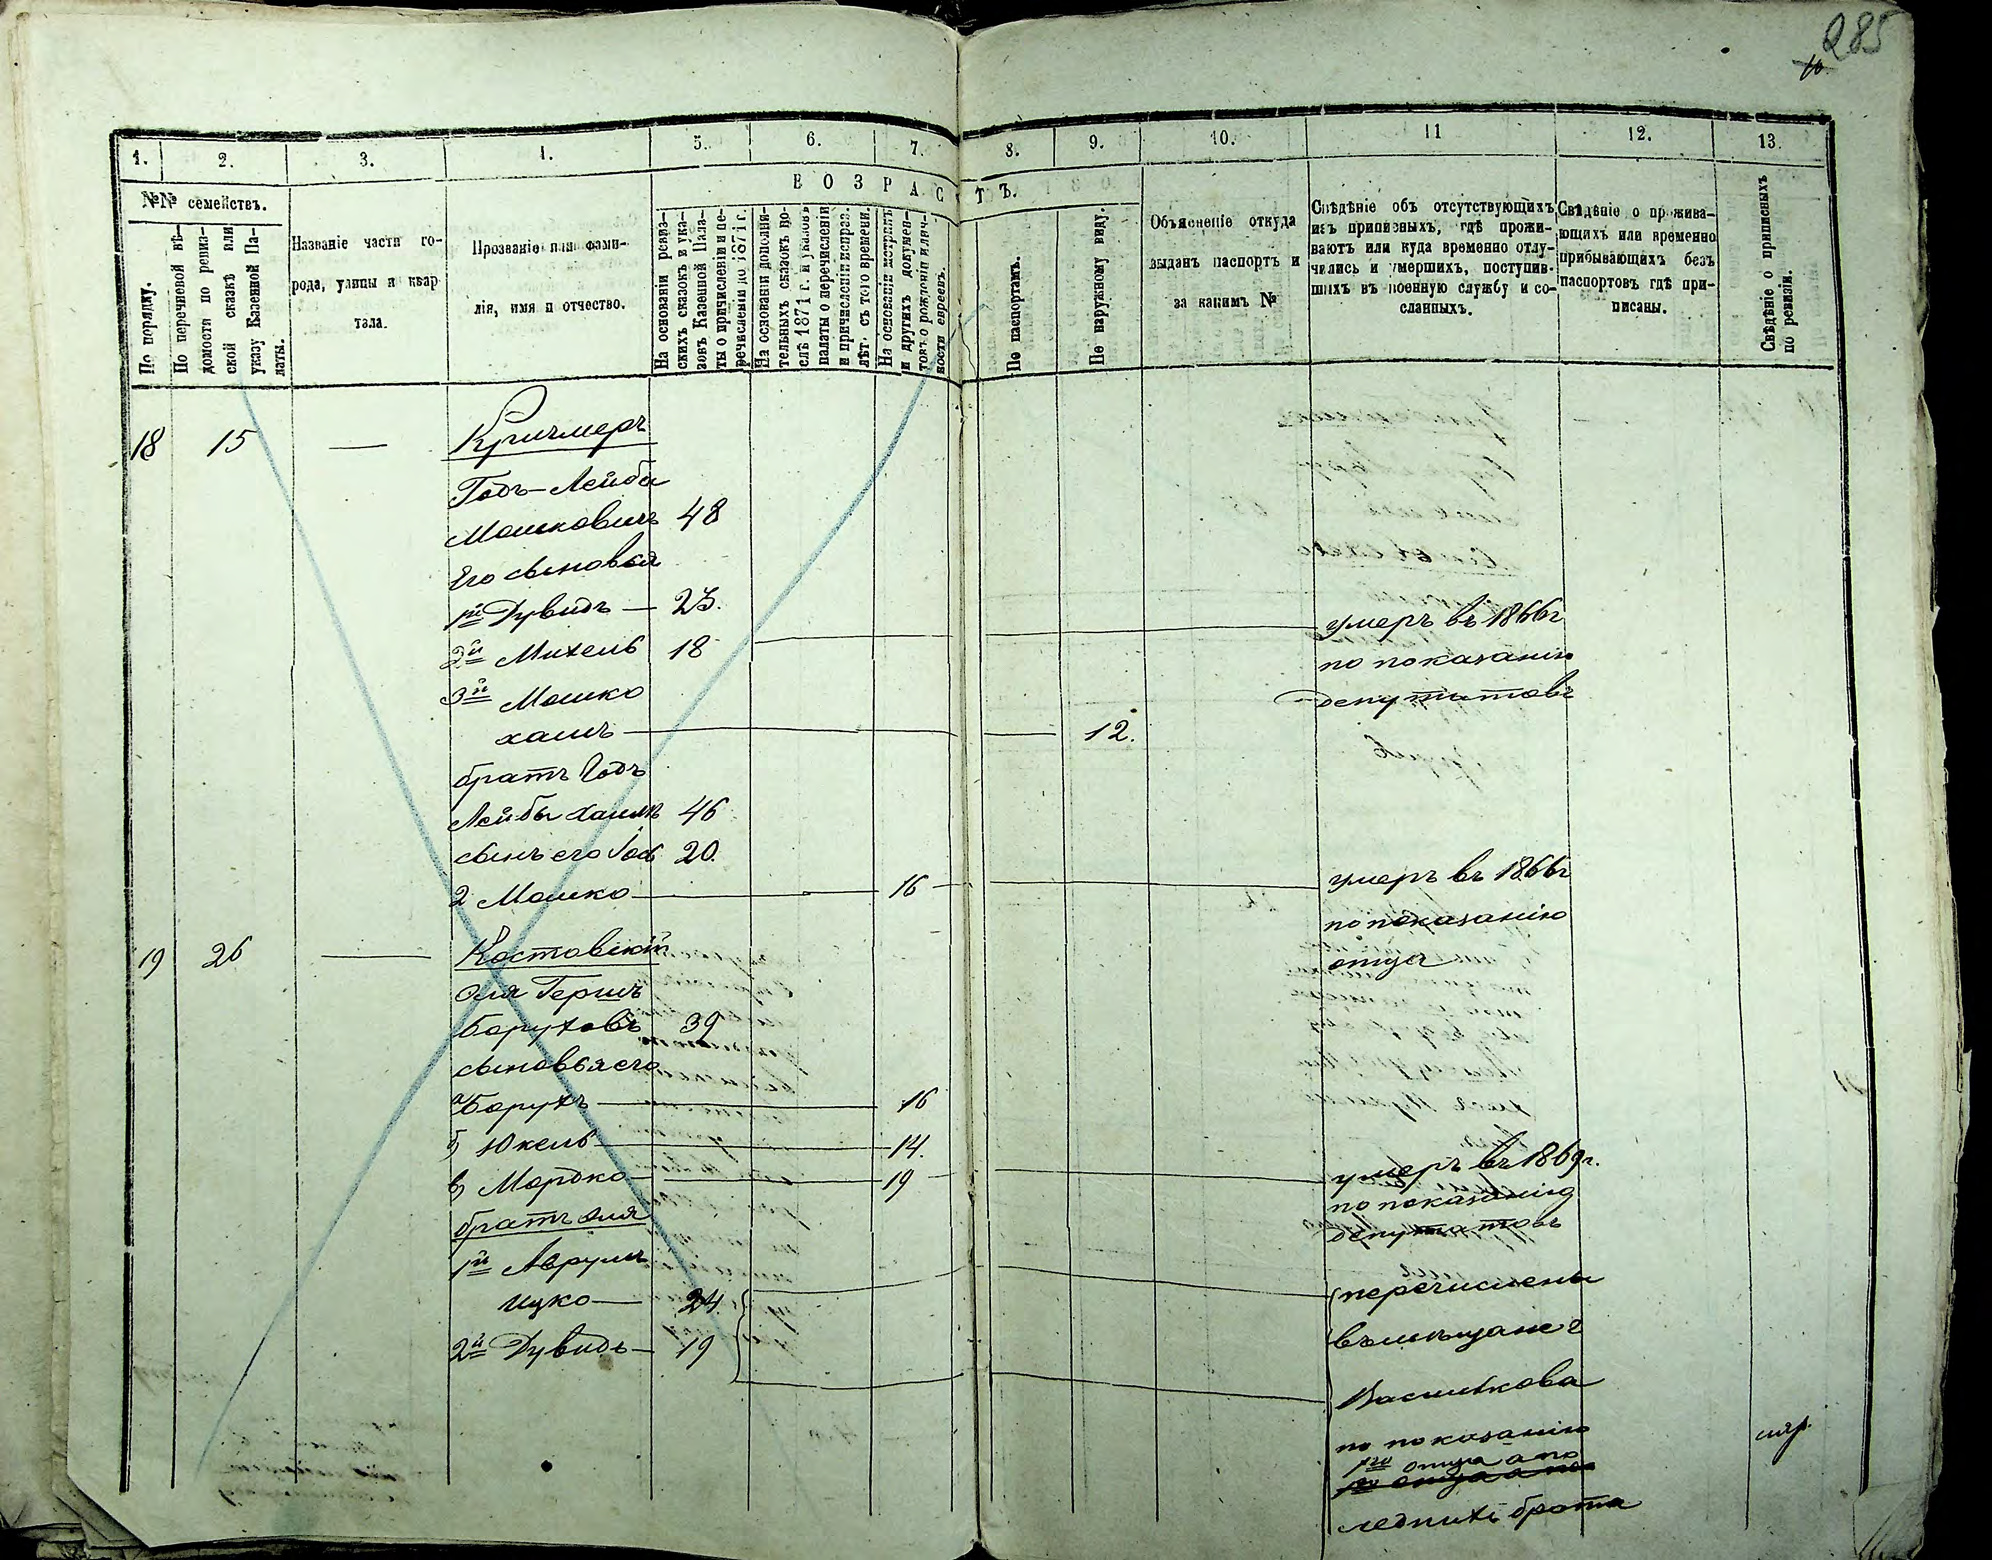 285
10
1. 2. 3. 4. 5. 6. 7. 8. 9. 10. 11 12. 13.
ВОЗРАСТЪ.
№№ семействъ.
По порядку.
По перечневой вѣ-
домости по ревиз-
ской сказкѣ или
указу Казенной Па-
латы.
Названіе части го-
рода, улицы и квар
тала.
Прозваніе или фами-
лія, имя и отчество.
На основаніи ревиз-
скихъ сказокъ и ука-
зовъ Казенной Пала-
ты о причисленіи и пе-
речисленіи до 1871 г.
На основаніи дополни-
тельныхъ сказокъ по-
слѣ 1871 г. и указовъ
палаты о перечисленіи
и причисленіи исправ.
лѣт. съ того времени.
На основаніи метрикъ
и другихъ докумен-
товъ о рожденіи и лич-
ности евреевъ.
По паспортамъ.
По наружному виду.
Объясненіе откуда
выданъ паспортъ и
за какимъ №
Свѣдѣніе объ отсутствующихъ
изъ приписныхъ, гдѣ прожи-
ваютъ или куда временно отлу-
чились и умершихъ, поступив-
шихъ въ военную службу и со-
сланныхъ.
Свѣдѣніе о прожива-
ющихъ или временно
прибывающихъ безъ
паспортовъ гдѣ при-
писаны.
Свѣдѣніе о приписныхъ
по ревизіи.
18 15 — Кричмеръ
Годъ-Лейба
Мошковичъ 48
Его сыновья
1й Дувидъ — 23. умеръ въ 1866г
2й Михель 18 по показанію
3й Мошко депутатовъ
хаимъ 12.
братъ Годъ
Лейбы хаимъ 46
сынъ его Іос 20.
2 Мошко 16 умеръ въ 1866г
по показанію
отца
19 26 — Костовскій
Эля Гершъ
Боруховъ 39
сыновья его
а) Борухъ 16
б) Юкель 14.
в) Мордко 19 умеръ въ 1869г.
по показанію
депутатовъ
братъ Эля
1й Аврумъ
Ицко — 24. перечислены
2й Дувидъ — 19 въ мѣщане г
Василькова
по показанію
1го отца а по
1го отца а по
слѣдних брата